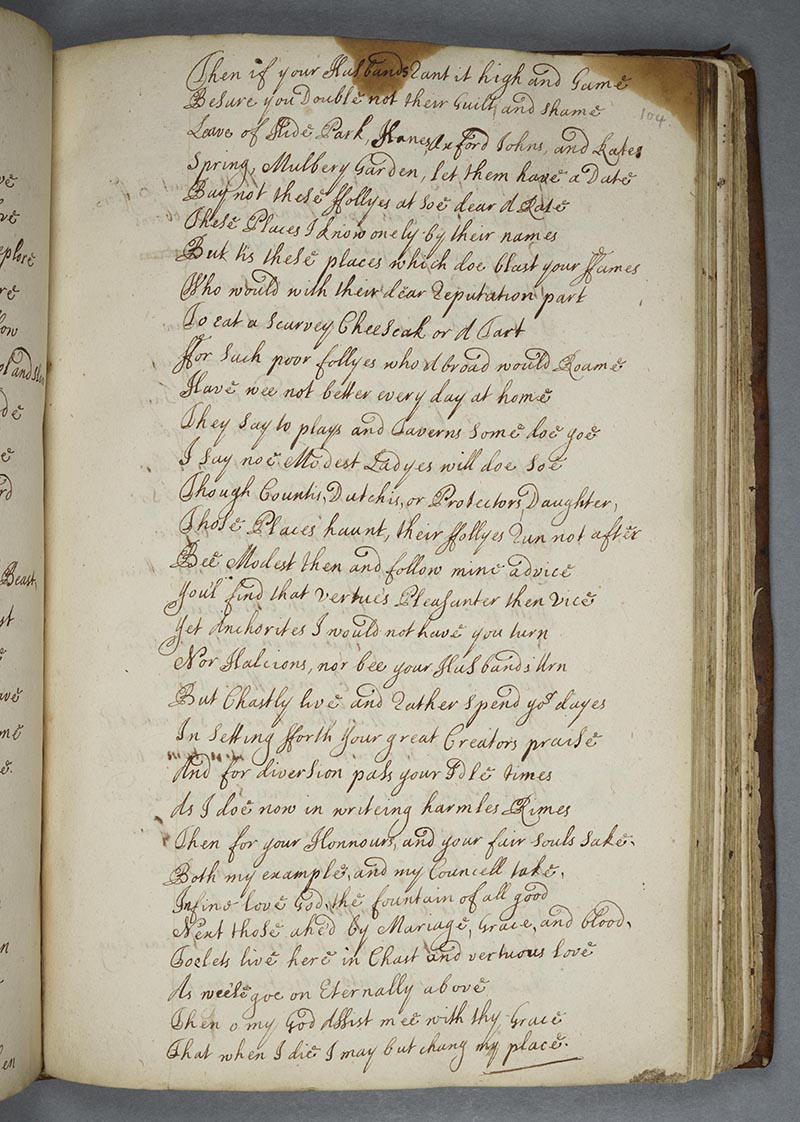 Then if your Husbands Rant it high and Game
Besure you Double not their Guilt, and shame
Leave of Hide Park, Hanes, Oxford Johns, and Kates
Spring, Mulbery Garden, let them have a Date
Buy not these ffollyes at soe dear a Rate
These Places I know onely by their names
But tis these places which doe blast your ffames
Who would with their dear Reputation part
To eat a scurvey Cheescak or a Tart
ffor such poor follyes who abroad would Roame
Have wee not better every day at home
They say to plays and Taverns some doe goe
I say noe Modest Ladyes will doe soe
Though Countis, Dutchis, or Protectors Daughter,
Those Places haunt, their ffollyes Run not after
Bee Modest then and follow mine advice
You'l find that vertue's Pleasanter then Vice
Yet Anchorites I would not have you turn
Nor Halcions, nor bee your Husbands Urn
But Chastly live and Rather spend yor dayes
In setting fforth Your great Creators praise
And for diversion pass your Idle times
As I doe now in writeing harmles Rimes
Then for your Honnours, and your fair souls sake,
Both my example, and my Councell take,
Infine love God, the fountain of all good
Next those alie'd by Mariage, Grace, and blood,
Soe lets live here in Chast and vertuous love
As wee'le goe on Eternally above
Then o my God Assist mee with thy Grace
That when I die I may but chang my place.
104.